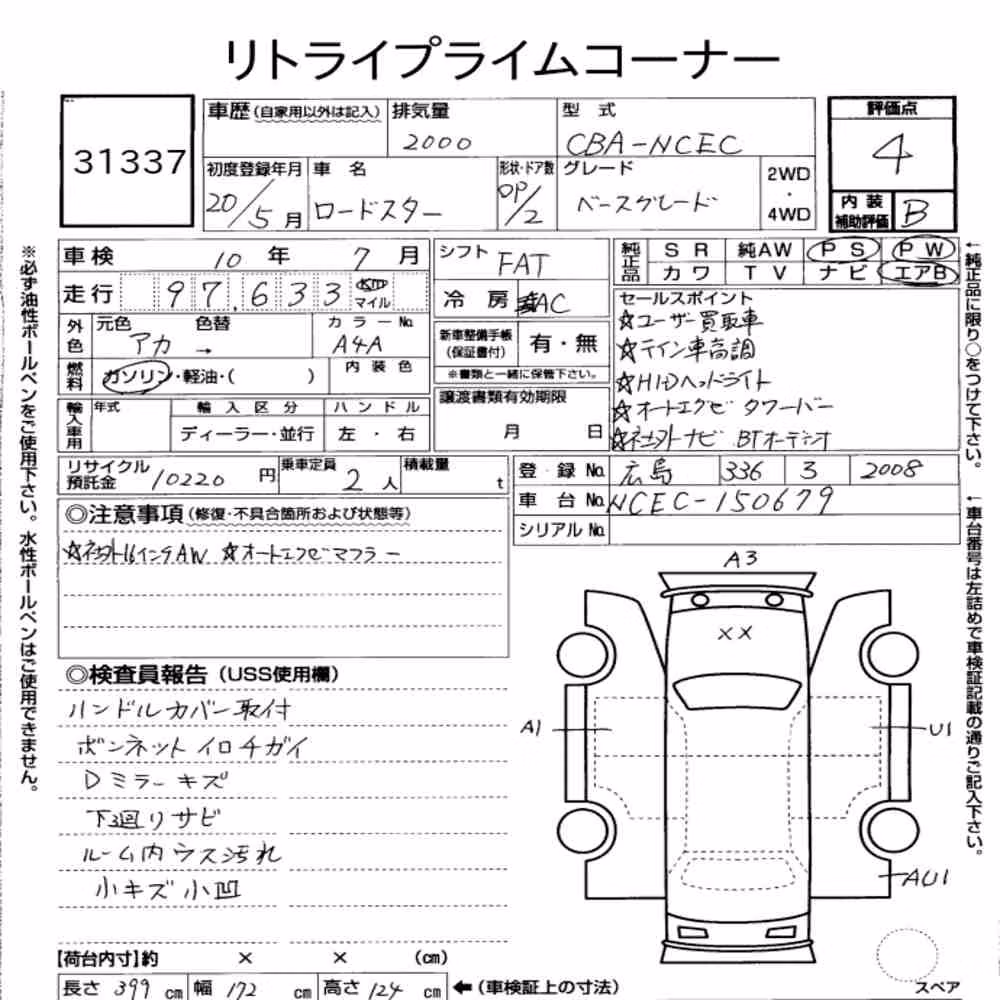 リトライプライムコーナー
31337
車歴(自家用以外は記入) 排気量 型式 評価点
2000 CBA-NCEC 4
初度登録年月 車名 形状・ドア数 グレード 2WD・4WD
20/5月 ロードスター OP/2 ベースグレード
内装補助評価 B
車検 10年 7月
シフト FAT
純正品 SR 純AW PS PW
カワ TV ナビ エアB
走行 97,633 km マイル
冷房 AC
セールスポイント
☆ユーザー買取車
☆テイン車高調
☆HIDヘッドライト
☆オートエグゼ タワーバー
☆社外ナビ BTオーディオ
外色 元色 色替 カラーNo.
アカ → A4A
新車整備手帳(保証書付) 有・無
※書類と一緒に保管下さい。
燃料 ガソリン・軽油・( ) 内装色
譲渡書類有効期限
月 日
輸入車用 年式 輸入区分 ハンドル
ディーラー・並行 左・右
リサイクル預託金 10220円 乗車定員 2人 積載量 t
登録No. 広島 336 3 2008
車台No. NCEC-150679
シリアルNo.
◎注意事項(修復・不具合箇所および状態等)
☆社外16インチAW ☆オートエグゼマフラー
◎検査員報告(USS使用欄)
ハンドルカバー取付
ボンネットイロチガイ
Dミラーキズ
下廻りサビ
ルーム内ウス汚れ
小キズ小凹
A3
××
A1
U1
AU1
スペア
【荷台内寸】約 × × (cm)
長さ 399cm 幅 172cm 高さ 124cm ←(車検証上の寸法)
※必ず油性ボールペンをご使用下さい。水性ボールペンはご使用できません。
←純正品に限り○をつけて下さい。
←車台番号は左詰めで車検証記載の通りご記入下さい。